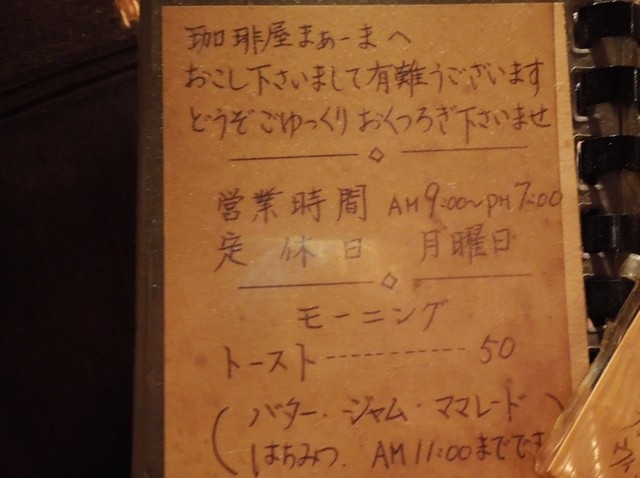 珈琲屋まぁーまへ
おこし下さいまして有難うございます
どうぞごゆっくりおくつろぎ下さいませ
営業時間 AM9:00~PM7:00
定休日 月曜日
モーニング
トースト---------- 50
(バター・ジャム・ママレード)
はちみつ. AM11:00までです